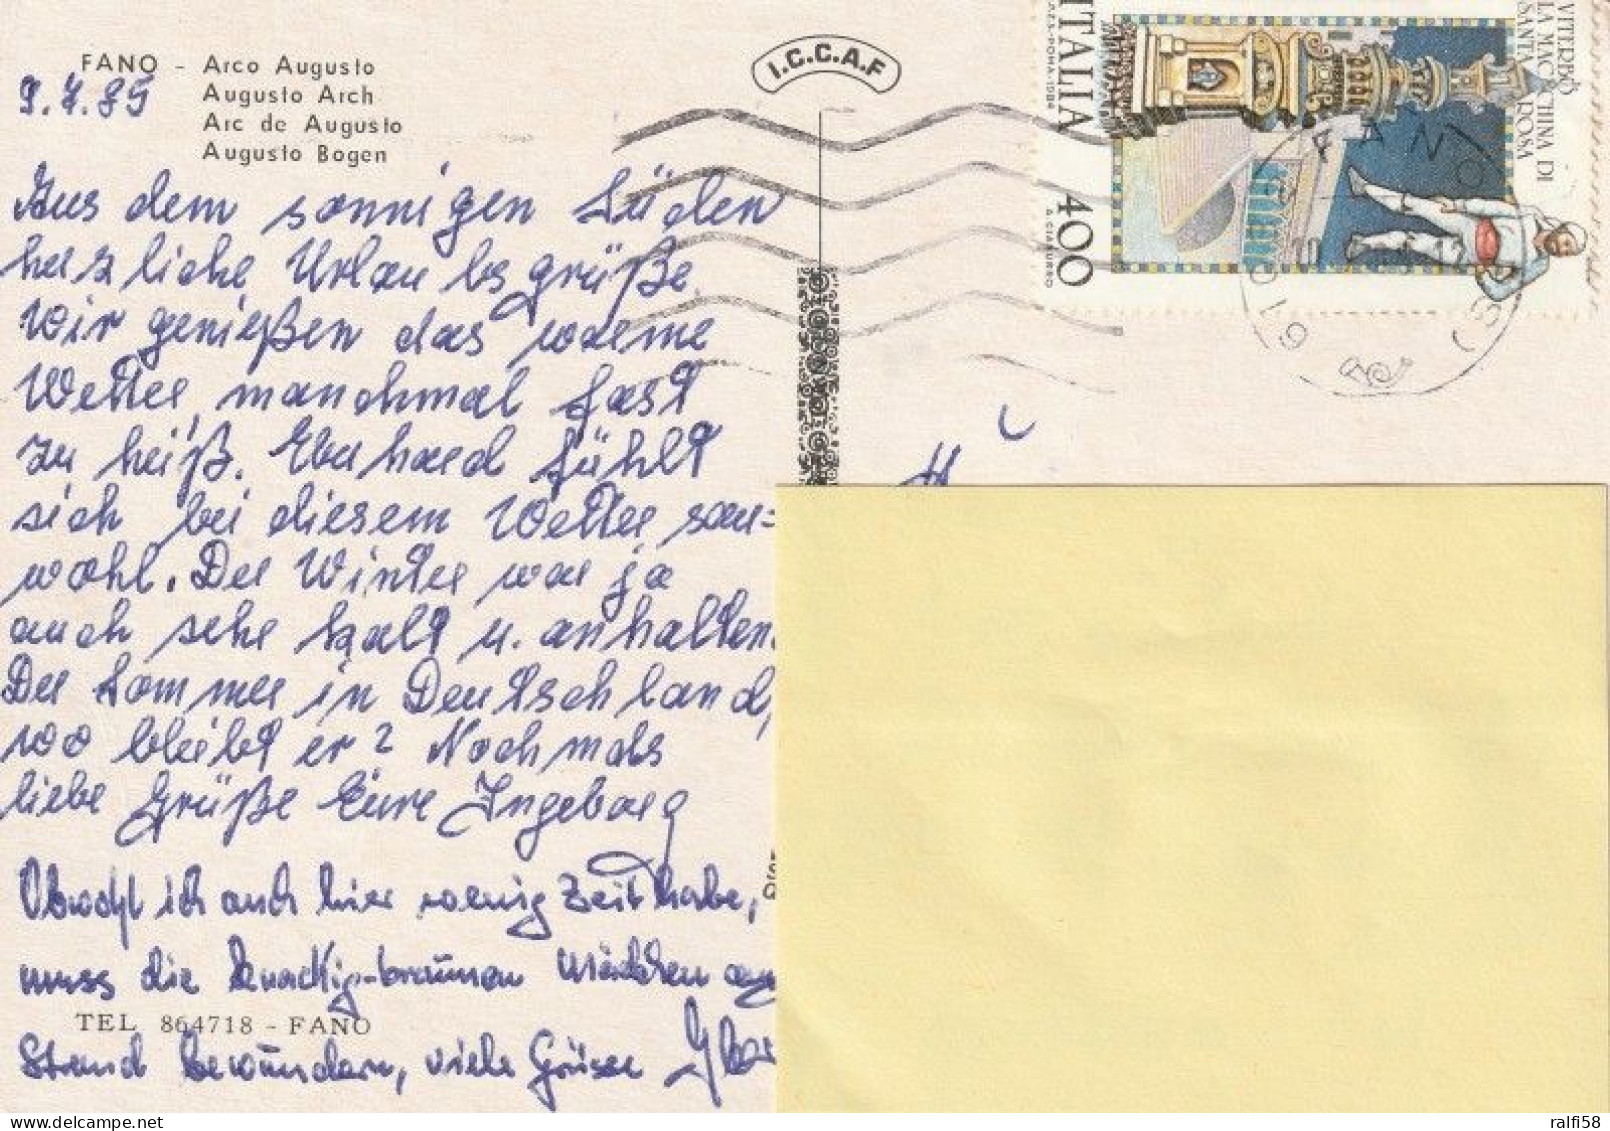 FANO - Arco Augusto
Augusto Arch
Arc de Augusto
Augusto Bogen
9.7.85
Aus dem sonnigen Süden
herzliche Urlaubsgrüße.
Wir genießen das warme
Wetter, manchmal fast
zu heiß. Eberhard fühlt
sich bei diesem Wetter sau=
wohl. Der Winter war ja
auch sehr kalt u. anhalten
Der Sommer in Deutschland,
wo bleibt er? Nochmals
liebe Grüße Eure Ingeborg
Obwohl ich auch hier wenig Zeit habe,
muss die knackig-braunen Mädchen am
TEL 864718 - FANO
Strand bewundern, viele Grüsse
I.C.C.A.F
VITERBO
LA MACCHINA DI
SANTA ROSA
ITALIA
400
I.P.Z.S.-ROMA-1984
A. CIABURRO
FANO
H
ralfi58